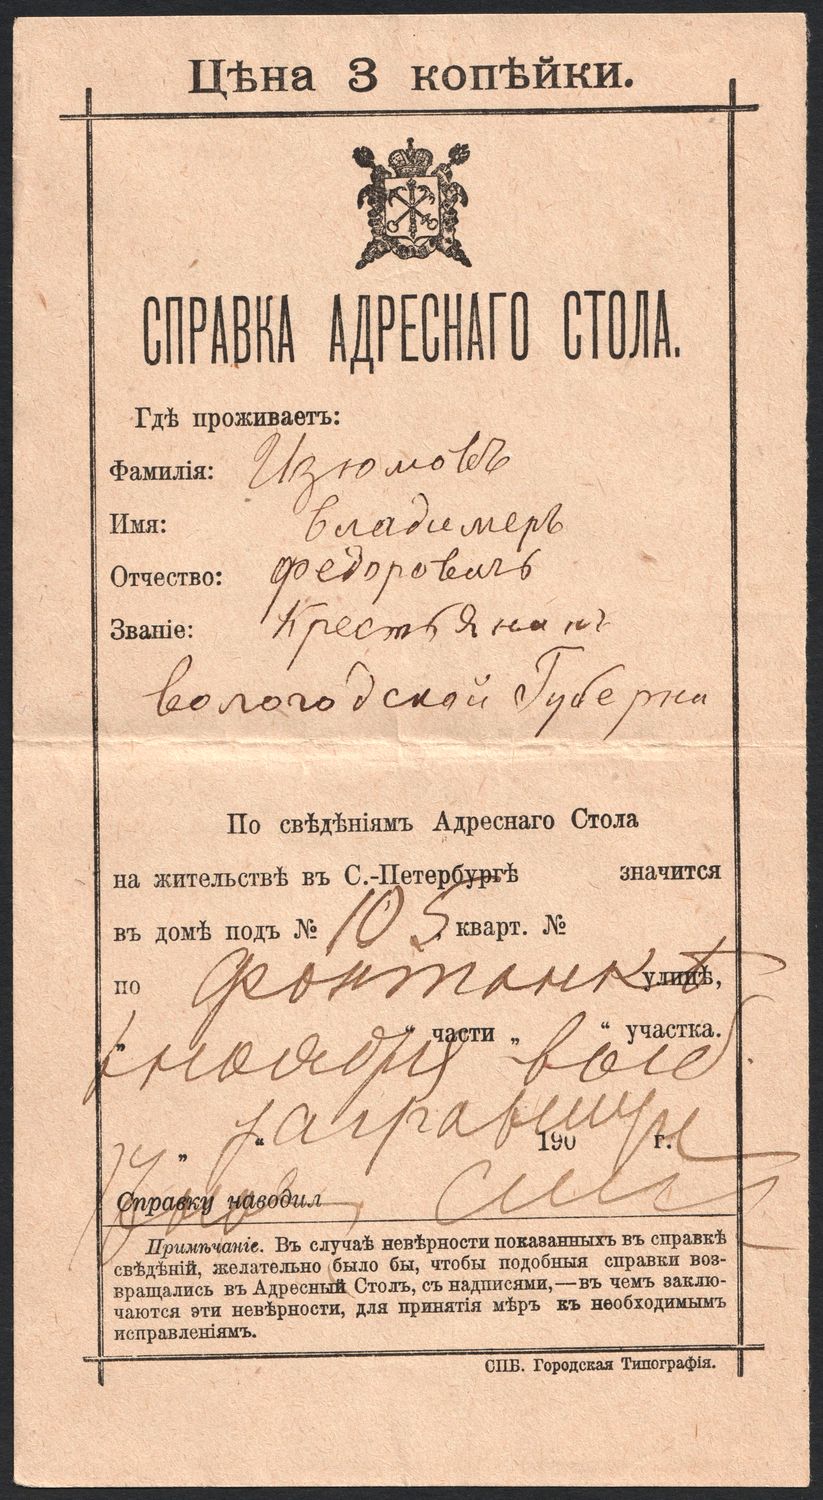 Цѣна 3 копѣйки.
СПРАВКА АДРЕСНАГО СТОЛА.
Гдѣ проживаетъ:
Фамилія: Изюмовъ
Имя: Владимеръ
Отчество: Федоровичъ
Званіе: Крестьянинъ
Вологодской Губерни
По свѣдѣніямъ Адреснаго Стола
на жительствѣ въ С.-Петербургѣ значится
въ домѣ подъ № 105 кварт. №
по Фонтанкѣ улицѣ,
„ “ части „ “ участка.
ноября выб.
„ “ 190 г.
Справку наводил
Примѣчаніе. Въ случаѣ невѣрности показанныхъ въ справкѣ
свѣдѣній, желательно было бы, чтобы подобныя справки воз-
вращались въ Адресный Столъ, съ надписями,—въ чемъ заклю-
чаются эти невѣрности, для принятія мѣръ къ необходимымъ
исправленіямъ.
СПБ. Городская Типографія.